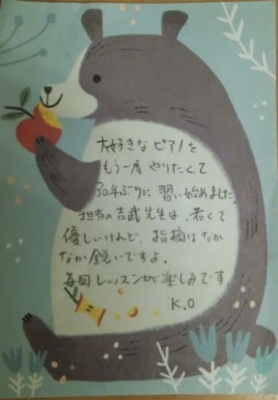 大好きなピアノを
もう一度 やりたくて
30年ぶりに 習い始めました
担当の吉武先生は、若くて
優しいけれど、指摘はなか
なか鋭いですよ。
毎回レッスンが楽しみです
K.O